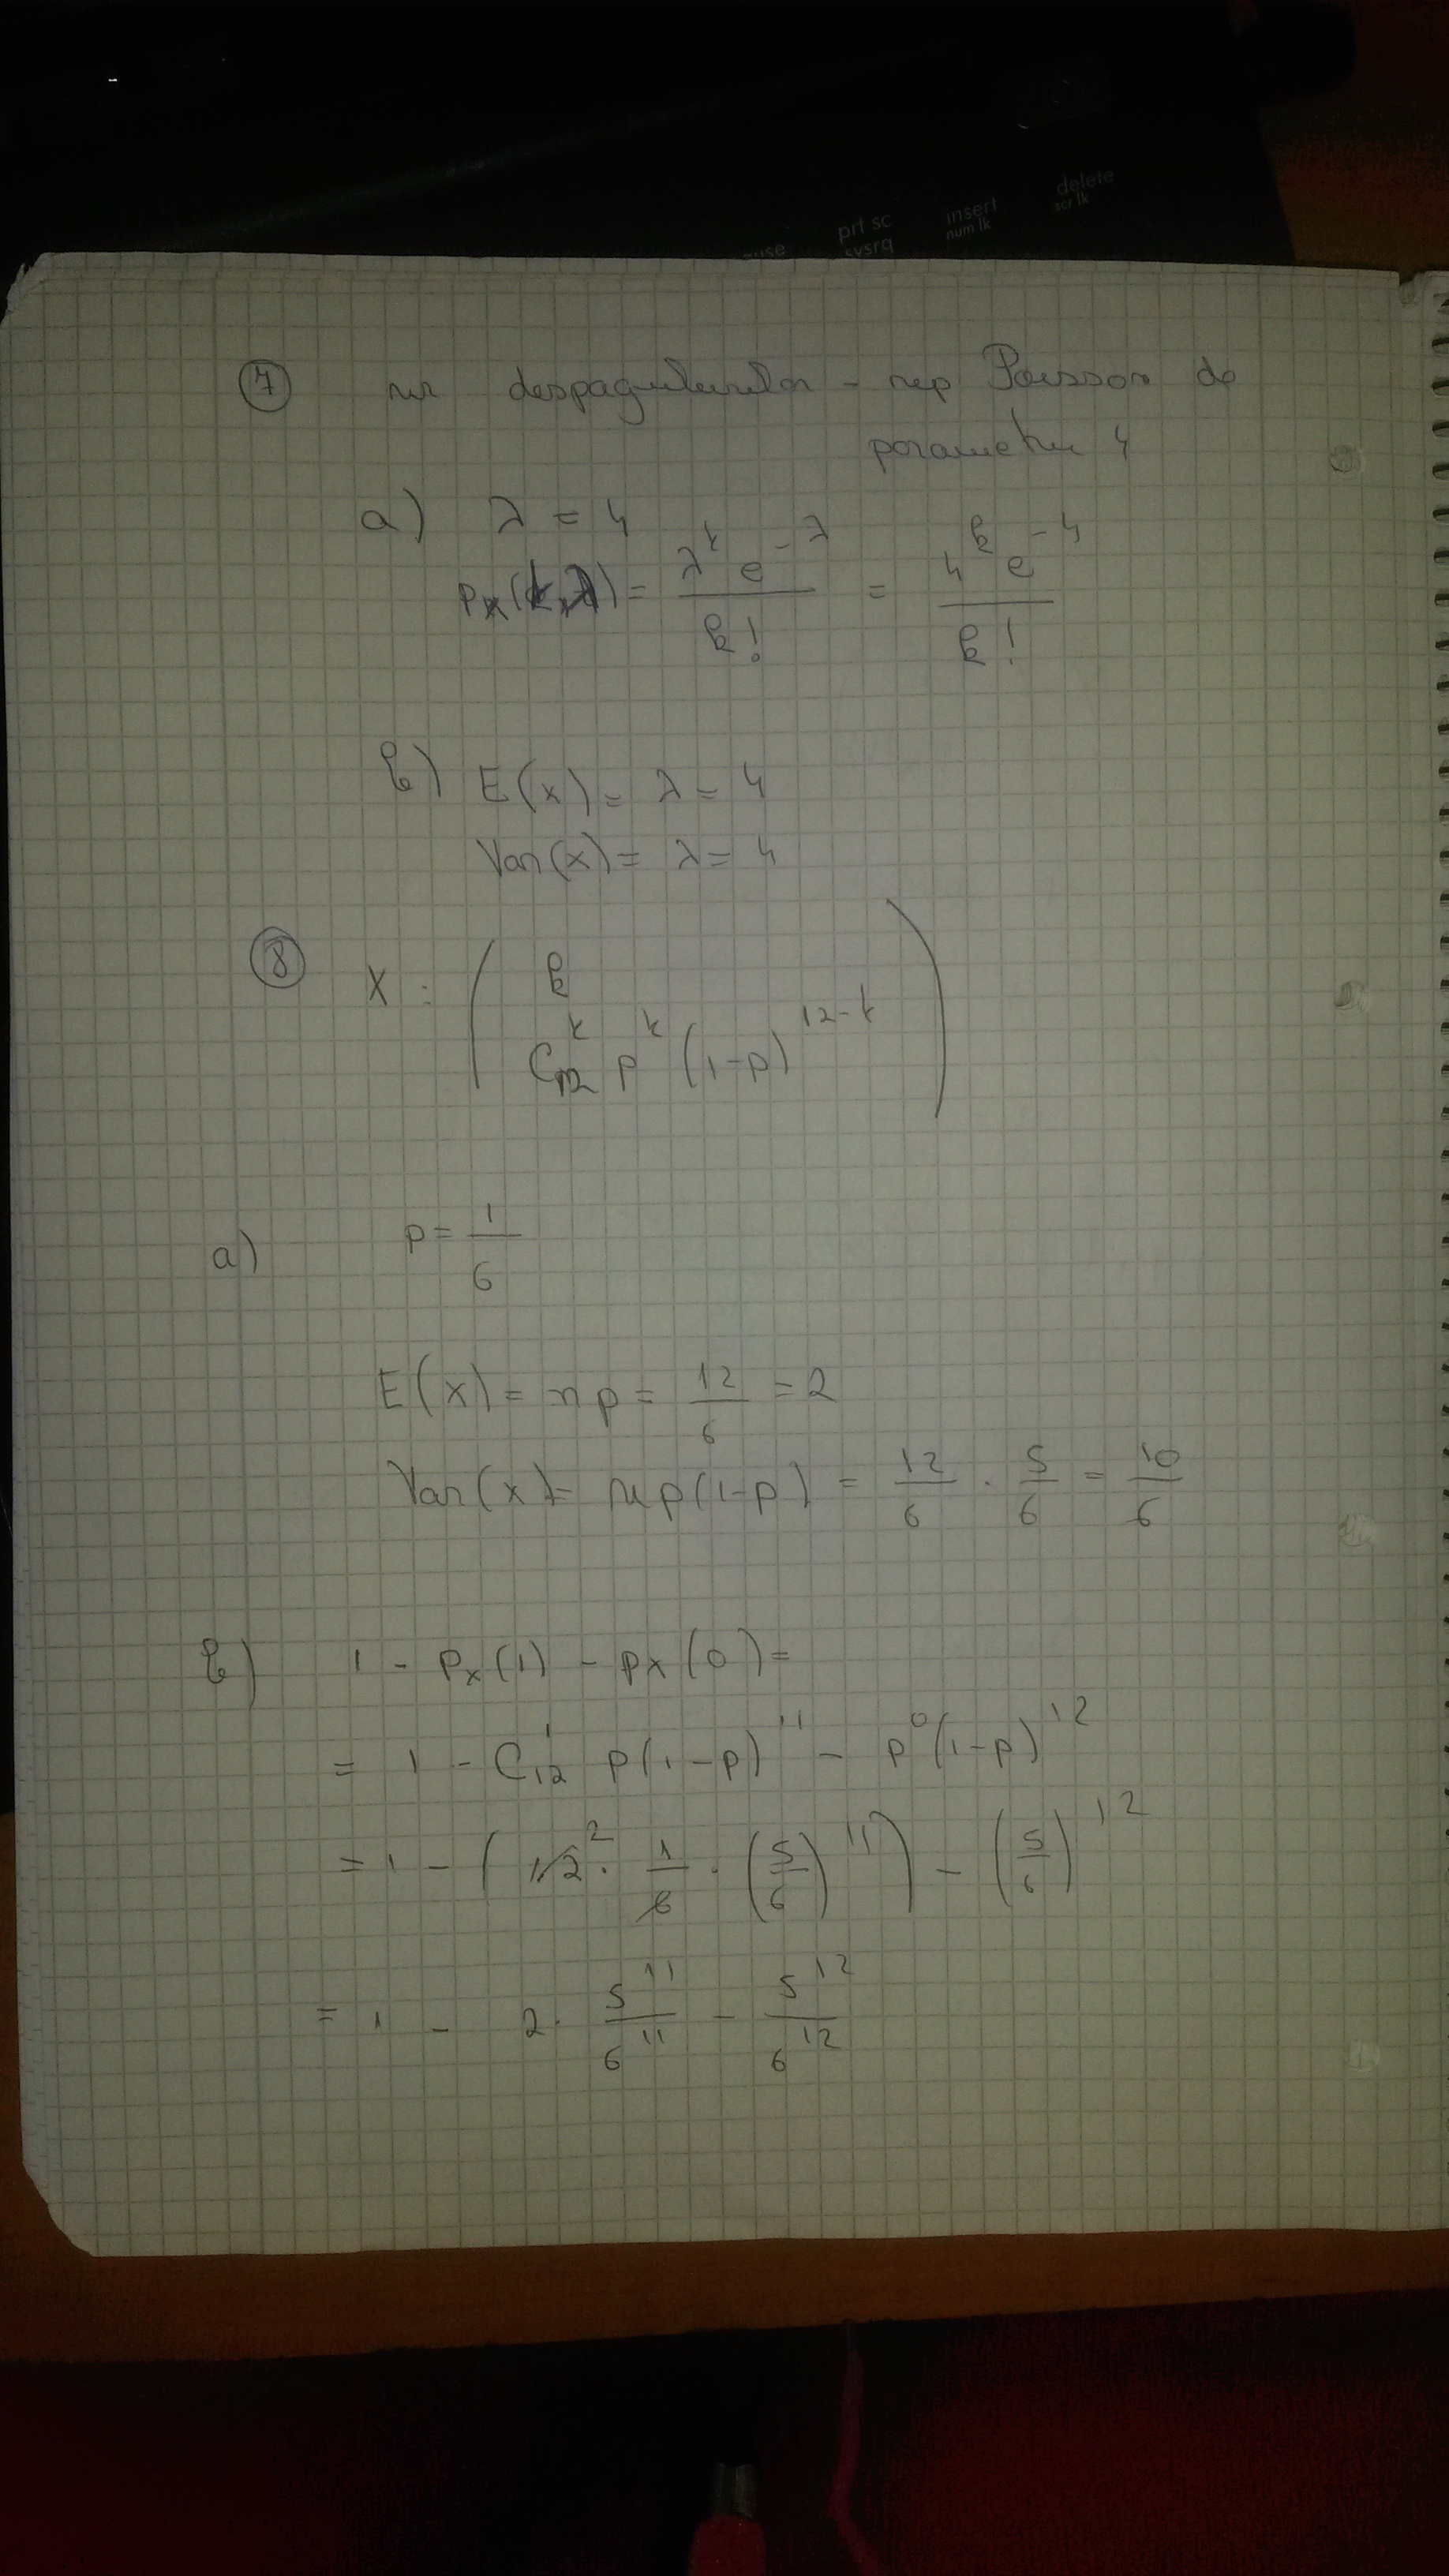 delete
scr lk
insert
num lk
prt sc
sysrq
⑦ nr despagubirilor - rep Poisson de
parametru 4
a) λ = 4
= λ^k e^-λ / k! = 4^k e^-4 / k!
b) E(x) = λ = 4
Var(x) = λ = 4
⑧ X : ( k
C_12^k p^k (1-p)^12-k )
a) p = 1/6
E(x) = np = 12/6 = 2
Var(x) = np(1-p) = 12/6 · 5/6 = 10/6
b) 1 - p_x(1) - p_x(0) =
= 1 - C_12^1 p(1-p)^11 - p^0 (1-p)^12
= 1 - ( 12^2 · 1/6 · (5/6)^11 ) - (5/6)^12
= 1 - 2 · 5^11/6^11 - 5^12/6^12